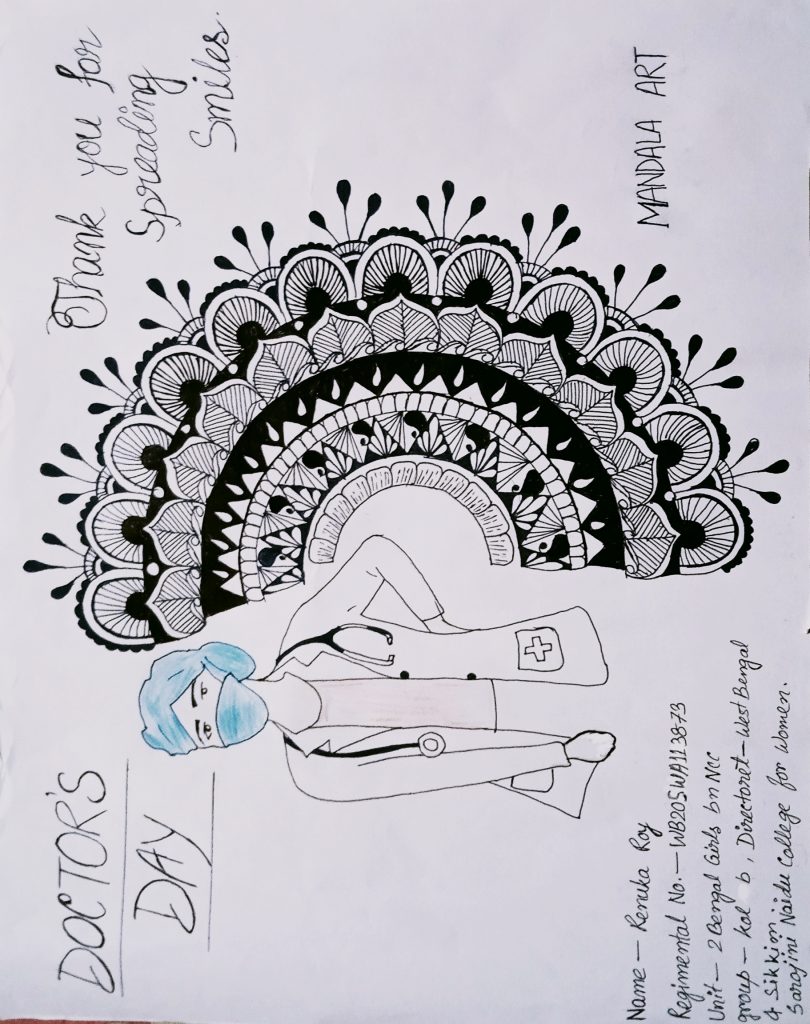 DOCTOR'S
DAY
Thank you for
Spreading
Smiles.
MANDALA ART
Name – Renuka Roy
Regimental No. – WB20SWA113873
Unit – 2 Bengal Girls bn NCC
group – kol b, Directoret – West Bengal
& Sikkim.
Sarojini Naidu College for Women.